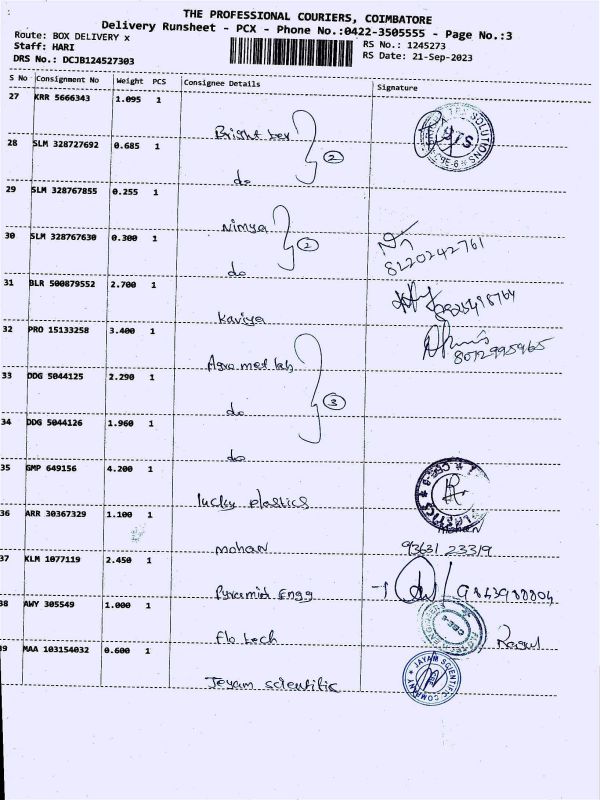 THE PROFESSIONAL COURIERS, COIMBATORE
Delivery Runsheet - PCX - Phone No.:0422-3505555 - Page No.:3
Route: BOX DELIVERY x
Staff: HARI
DRS No.: DCJB124527303
RS No.: 1245273
RS Date: 21-Sep-2023
S No Consignment No Weight PCS Consignee Details Signature
27 KRR 5666343 1.095 1
Bright
28 SLM 328727692 0.685 1
do
2
29 SLM 328767855 0.255 1
Nimya
30 SLM 328767630 0.300 1
do
2
8220242761
31 BLR 500879552 2.700 1
Kaviya
32 PRO 15133258 3.400 1
Agro med lab
8072995965
33 DDG 5044125 2.290 1
do
3
34 DDG 5044126 1.960 1
do
35 GMP 649156 4.200 1
lucky plastics
PLASTICS
36 ARR 30367329 1.100 1
mohan
Mohan
93631 23319
37 KLM 1077119 2.450 1
Pyramid Engg
38 AWY 305549 1.000 1
Flo tech
39 MAA 103154032 0.600 1
Jeyam scientific
JAYAM SCIENTIFIC COMPANY